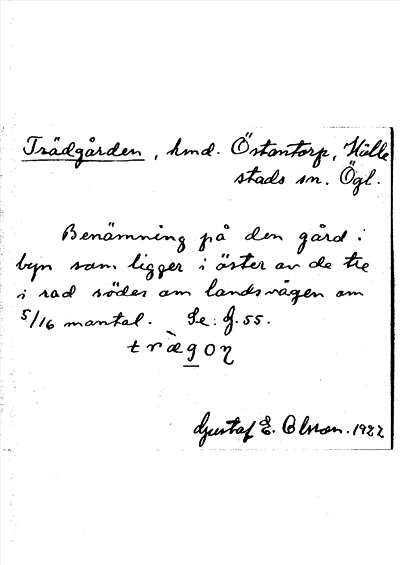 Trädgården, hmd. Östantorp, Hälle
stads sn. Ögl.
Benämning på den gård i
byn som ligger i öster av de tre
i rad söder om landsvägen om
5/16 mantal. Se: J. 55.
træ̀gon
Gustaf E. Olsson. 1922